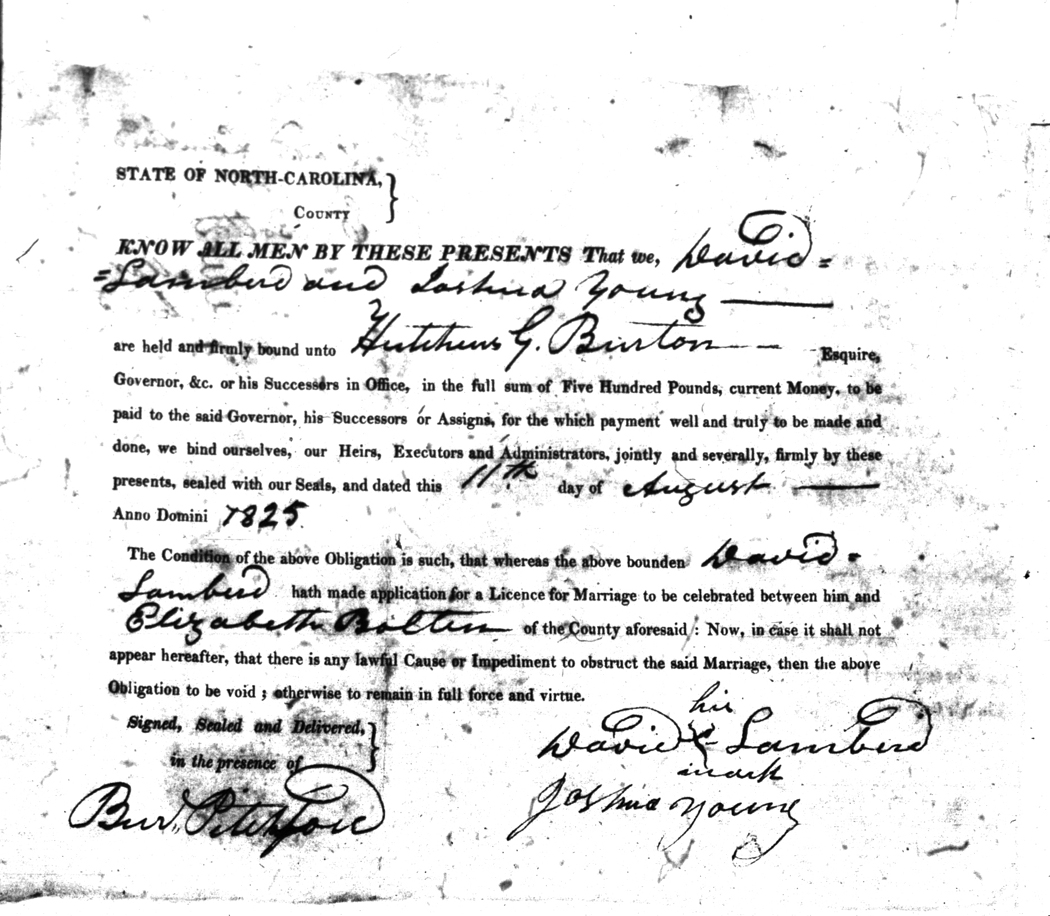 STATE OF NORTH-CAROLINA,
COUNTY
KNOW ALL MEN BY THESE PRESENTS That we, David =
= Lamberd and Joshua Young
are held and firmly bound unto Hutchins G. Burton Esquire,
Governor, &c. or his Successors in Office, in the full sum of Five Hundred Pounds, current Money, to be
paid to the said Governor, his Successors or Assigns, for the which payment well and truly to be made and
done, we bind ourselves, our Heirs, Executors and Administrators, jointly and severally, firmly by these
presents, sealed with our Seals, and dated this 11th day of August
Anno Domini 1825
The Condition of the above Obligation is such, that whereas the above bounden David =
Lamberd hath made application for a Licence for Marriage to be celebrated between him and
Elizabeth Bolten of the County aforesaid : Now, in case it shall not
appear hereafter, that there is any lawful Cause or Impediment to obstruct the said Marriage, then the above
Obligation to be void ; otherwise to remain in full force and virtue.
Signed, Sealed and Delivered,
in the presence of
his
David X Lamberd
mark
Joshua Young
Bur. Pitchford